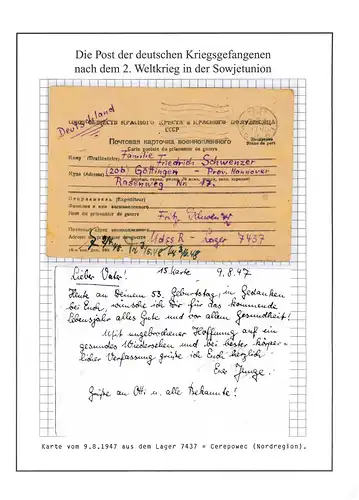 Die Post der deutschen Kriegsgefangenen
nach dem 2. Weltkrieg in der Sowjetunion
Deutschland
КРАСНОГО КРЕСТА и КРАСНОГО ПОЛУМЕСЯЦА
СССР
Почтовая карточка военнопленного
Carte postale du prisonnier de guerre
Кому (Destinataire) Familie Friedrich Schwenzer
Куда (Adresse) (20b) Göttingen - Prov. Hannover
Rasenweg Nr 17.
Отправитель (Expéditeur)
Фамилия и имя военнопленного
Nom du prisonnier de guerre Fritz Schwenzer
UdSSR - Lager 7437
Lieber Vater! 15. Karte 9.8.47
Heute an Deinem 53. Geburtstag, in Gedanken
bei Euch, wünsche ich Dir für das kommende
Lebensjahr alles Gute und vor allem Gesundheit!
Mit ungebrochener Hoffnung auf ein
gesundes Wiedersehen und bei bester körper-
licher Verfassung grüße ich Euch herzlich!
Euer Junge.
Grüße an Otti u. alle Bekannte!
Karte vom 9.8.1947 aus dem Lager 7437 = Cerepowec (Nordregion).